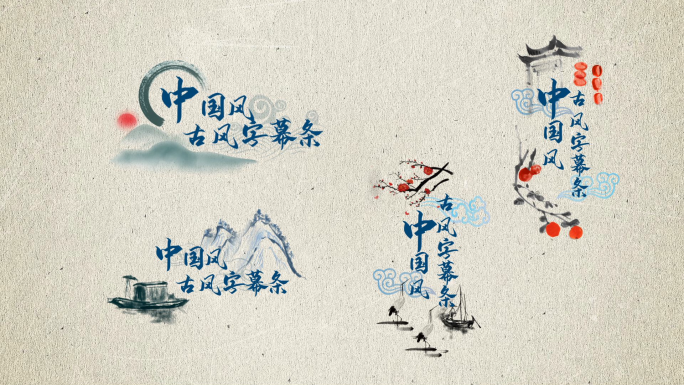 中国风
古风字幕条
中国风
古风字幕条
古风字幕条
中国风
古风字幕条
中国风